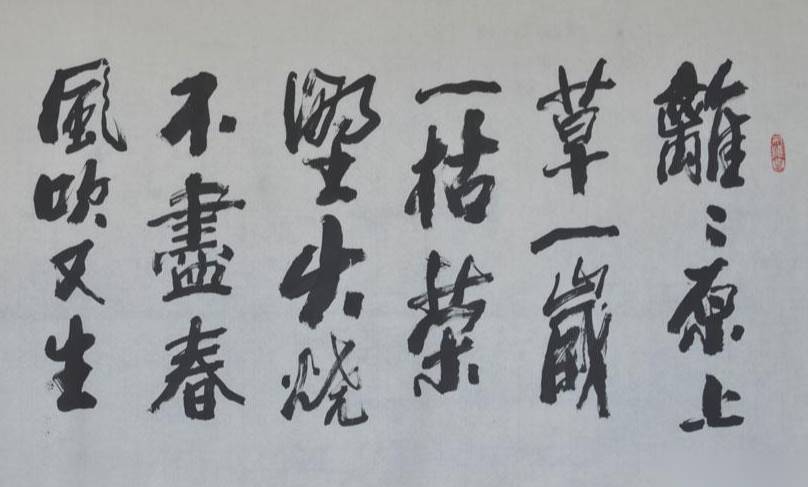 離〻原上
草一歲
一枯榮
野火燒
不盡春
風吹又生